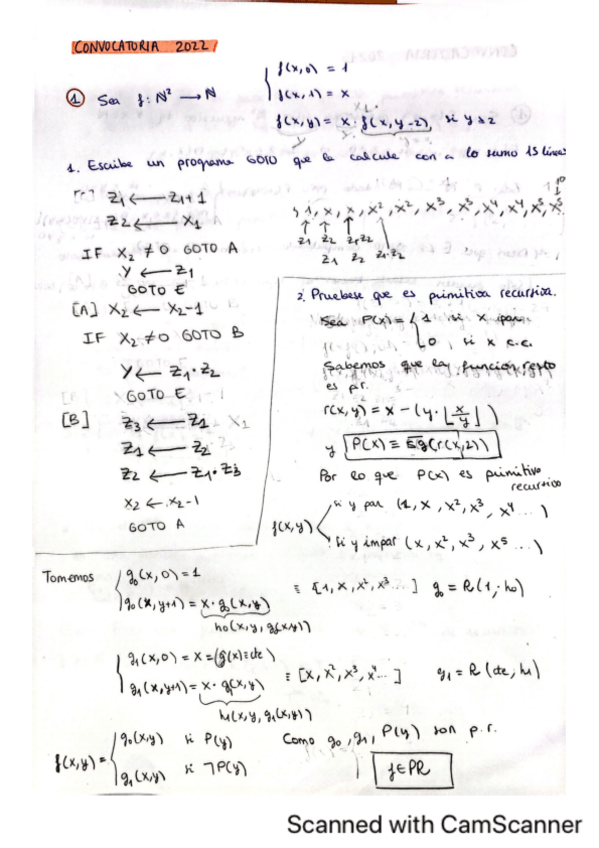 CONVOCATORIA 2022
① Sea f: N² → N
f(x,0) = 1
f(x,1) = x
f(x,y) = x · f(x,y-2), si y ≥ 2
1. Escribe un programa GOTO que la calcule con a lo sumo 15 líneas
Z1 ← Z1+1
Z2 ← X1
IF X2 ≠ 0 GOTO A
Y ← Z1
GOTO E
[A] X2 ← X2-1
IF X2 ≠ 0 GOTO B
Y ← Z1·Z2
GOTO E
[B] Z3 ← Z1
Z1 ← Z2
Z2 ← Z1·Z3
X2 ← X2-1
GOTO A
1, x, x, x², x², x³, x³, x⁴, x⁴, x⁵, x⁵
↑ ↑ ↑
Z1 Z2 Z1·Z2
Z1 Z2 Z1·Z2
2. Pruébese que es primitiva recursiva.
Sea P(x) = { 1 si x par
0, si x e.c.
Sabemos que la función resto
es p.r.
r(x,y) = x - (y · ⌊x/y⌋)
y P(x) ≡ Sg(r(x,2))
Por lo que P(x) es primitivo
recursivo
f(x,y)
si y par (1, x, x², x³, x⁴ ...)
si y impar (x, x², x³, x⁵ ...)
Tomemos
g₀(x,0) = 1
g₀(x,y+1) = x · g₀(x,y)
h₀(x,y,g₀(x,y))
≡ [1, x, x², x³ ...] g₀ = R(1, h₀)
g₁(x,0) = x = (g(x) ≡ cte)
g₁(x,y+1) = x · g(x,y)
h₁(x,y,g₁(x,y))
≡ [x, x², x³, x⁴ ...] g₁ = R(cte, h₁)
f(x,y) =
g₀(x,y) si P(y)
g₁(x,y) si ¬P(y)
Como g₀, g₁, P(y) son p.r.
f ∈ PR
Scanned with CamScanner